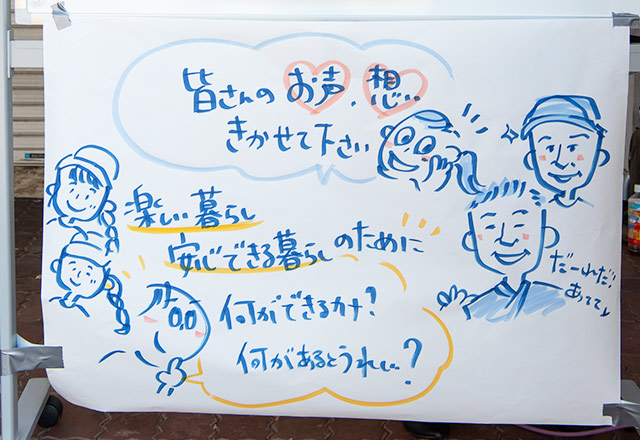 皆さんの お声、想い
きかせて下さい
楽しい暮らし
安心できる暮らしのために
何ができるカナ?
何があるとうれしい?
だーれだ!
あてて♪